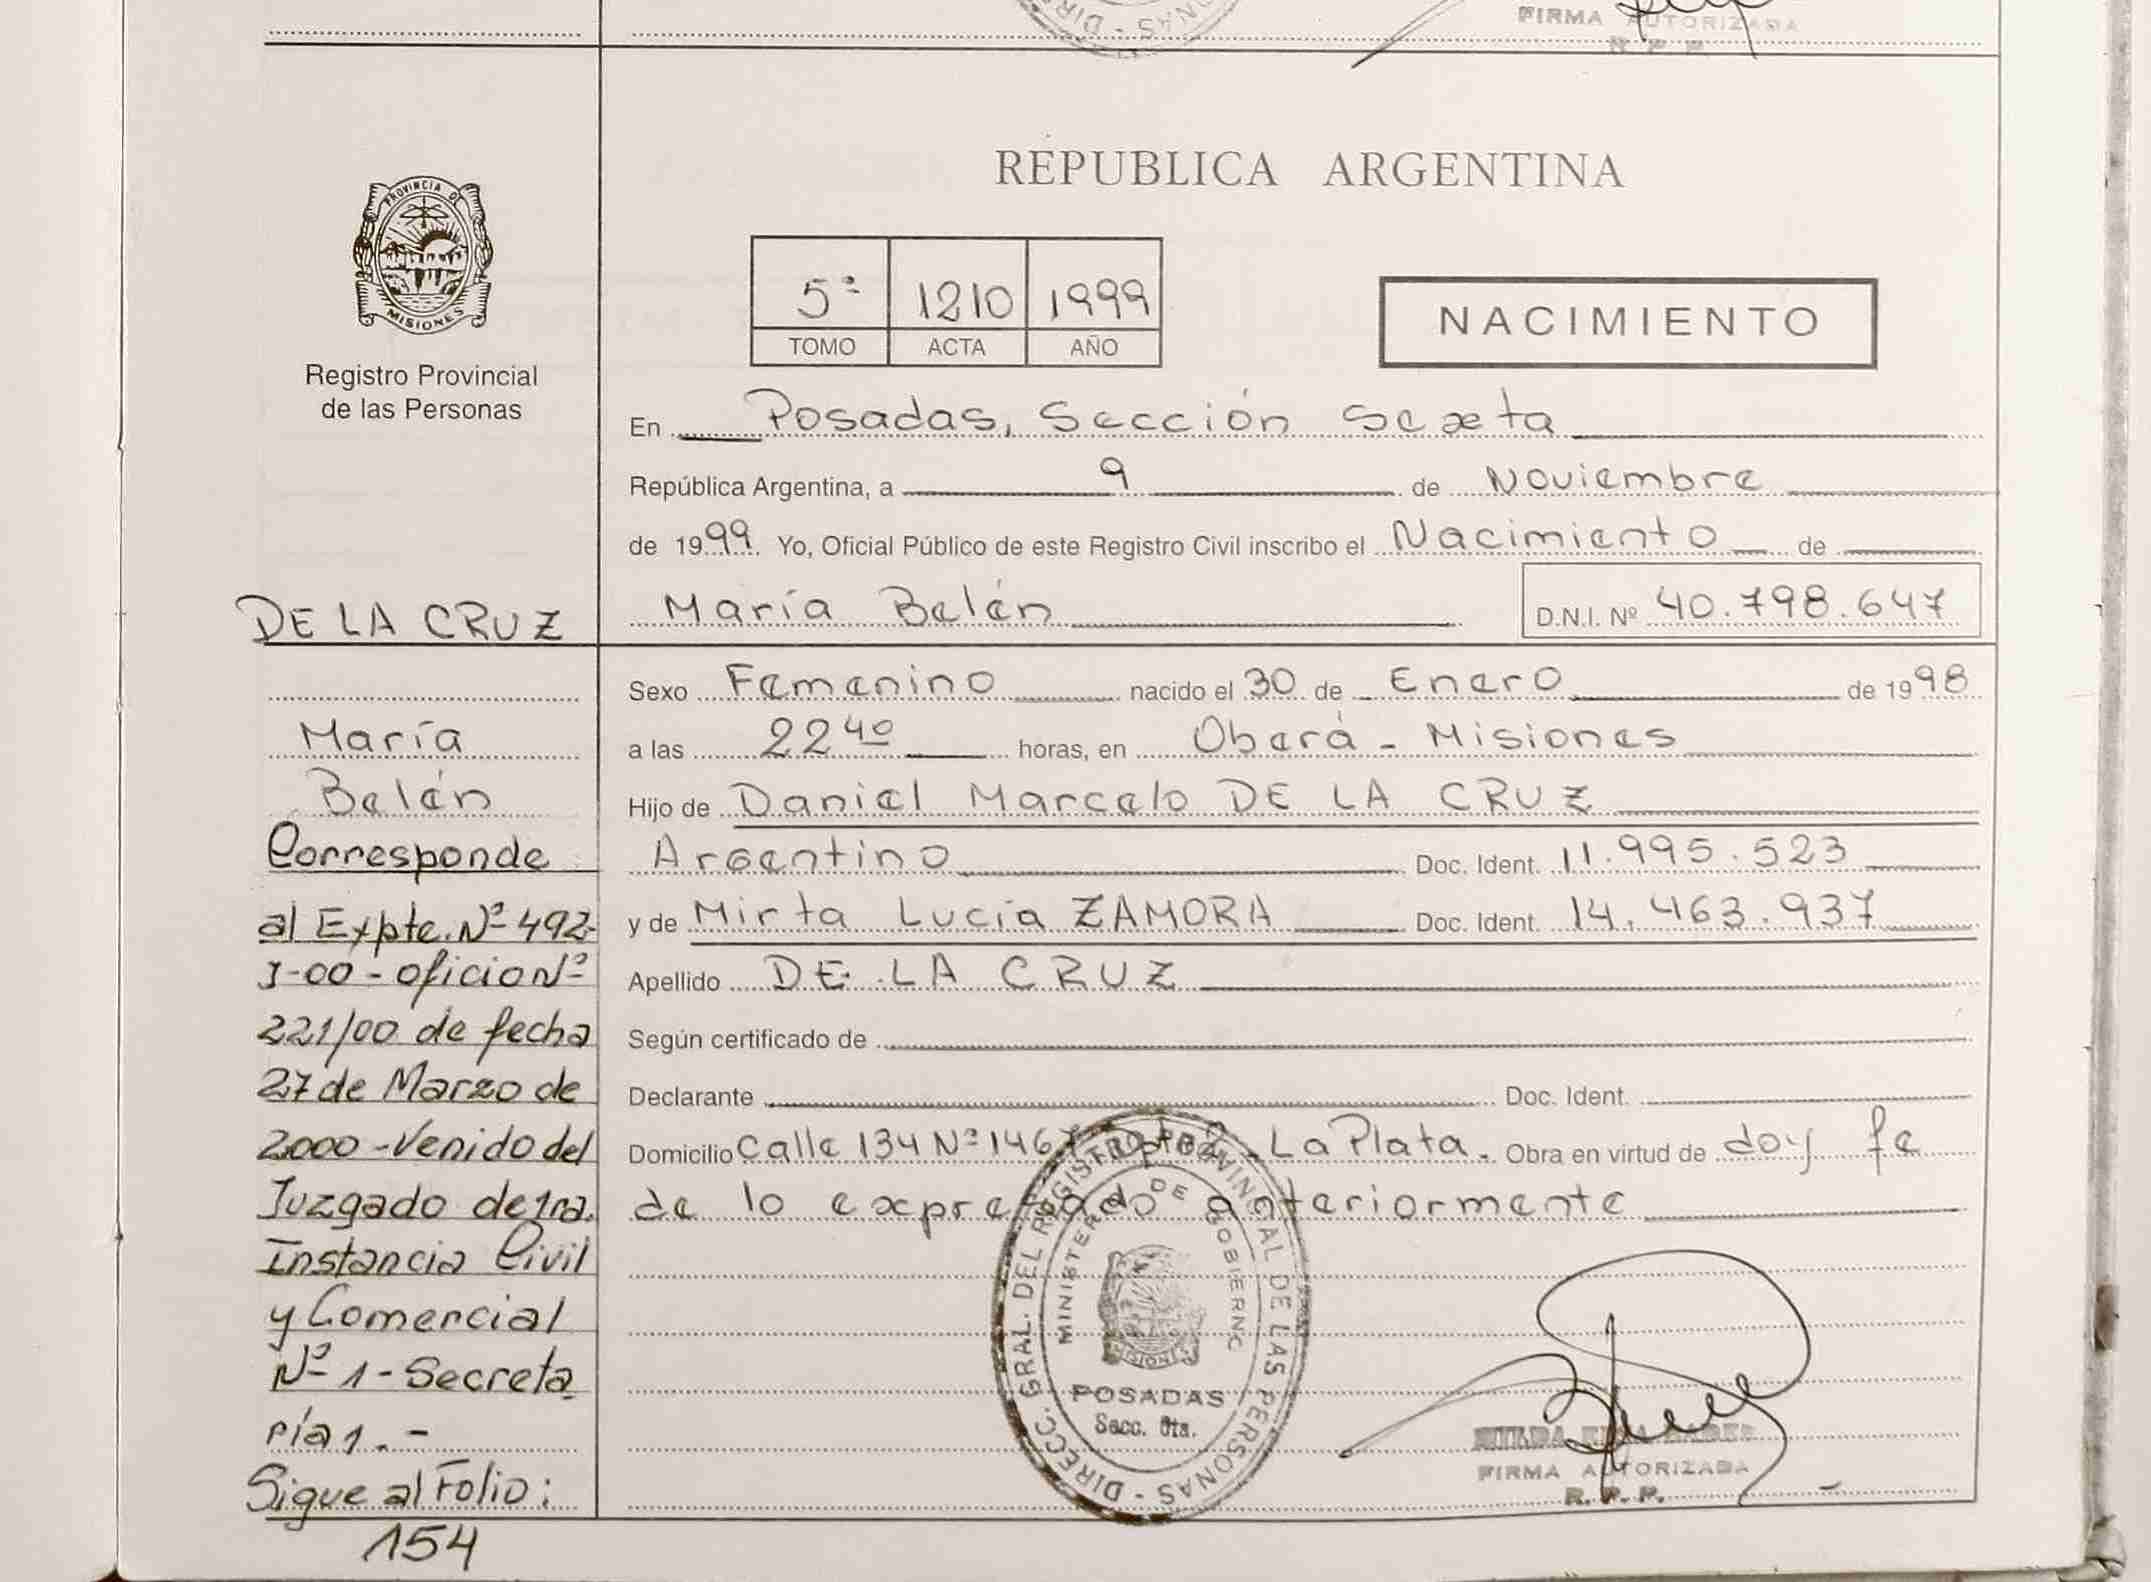 FIRMA AUTORIZADA
REPUBLICA ARGENTINA
PROVINCIA DE
MISIONES
Registro Provincial
de las Personas
5ª 1210 1999
TOMO ACTA AÑO
NACIMIENTO
En Posadas, Sección Sexta
República Argentina, a 9 de Noviembre
de 1999. Yo, Oficial Público de este Registro Civil inscribo el Nacimiento de
María Belén D.N.I. Nº 40.798.647
Sexo Femenino nacido el 30 de Enero de 1998
a las 22 40 horas, en Oberá - Misiones
Hijo de Daniel Marcelo DE LA CRUZ
Argentino Doc. Ident. 11.995.523
y de Mirta Lucía ZAMORA Doc. Ident. 14.463.937
Apellido DE LA CRUZ
Según certificado de
Declarante Doc. Ident.
Domicilio Calle 134 Nº 1467 La Plata. Obra en virtud de doy fe
de lo expresado anteriormente
DE LA CRUZ
María
Belén
Corresponde
al Expte. Nº 492-
I-00 - oficio Nº
221/00 de fecha
27 de Marzo de
2000 - Venido del
Juzgado de 1ra.
Instancia Civil
y Comercial
Nº 1 - Secreta
ría 1. -
Sigue al Folio:
154
DIRECC. GRAL. DEL REGISTRO PROVINCIAL DE LAS PERSONAS
MINISTERIO DE GOBIERNO
MISIONES
POSADAS
Secc. 6ta.
FIRMA AUTORIZADA
R. P. P.